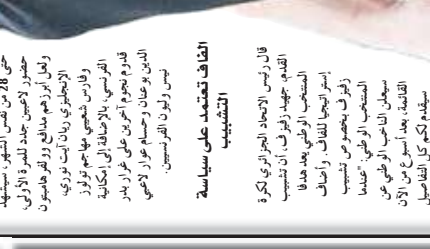 حتى 28 من نفس الشهر، سيشهد
حضور لاعبين جدد للمرة الأولى،
ولعل أبرزهم مدافع وولفرهامبتون
الإنجليزي ريان آيت نوري،
وفارس شعيبي مهاجم تولوز
الفرنسي، بالإضافة إلى إمكانية
قدوم نجوم آخرين على غرار بدر
الدين بوعنان وحسام عوار لاعبي
نيس وليون الفرنسيين.
الفاف تعتمد على سياسة
التشبيب
قال رئيس الاتحاد الجزائري لكرة
القدم، جهيد زفيزف، أن تشبيب
المنتخب الوطني يعد هدفا
إستراتيجيا للفاف. وأضاف
زفيزف بخصوص تشبيب
المنتخب الوطني: "عندما
سيعلن الناخب الوطني عن
القائمة، بعد أسبوع من الآن
سيقدم لكم كل التفاصيل